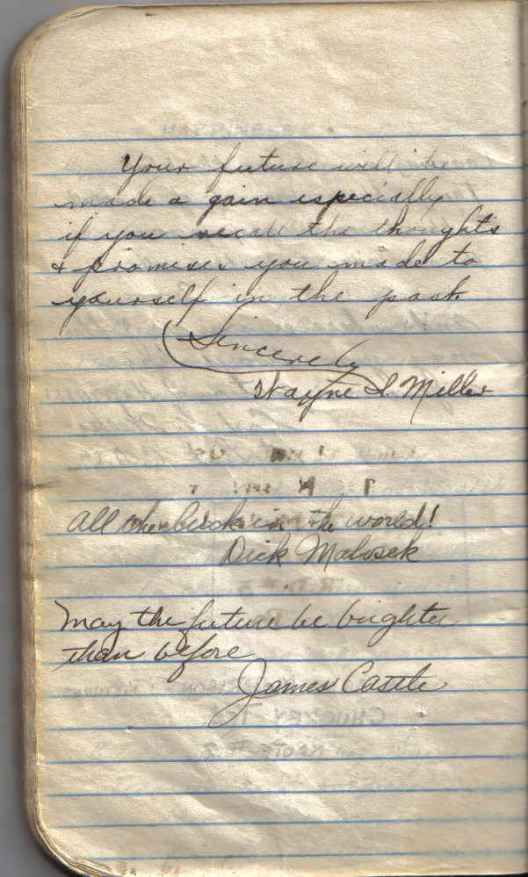 Your future will be
made a gain especially
if you recall the thoughts
& promises you made to
yourself in the past
Sincerely
Wayne L Miller
All the luck in the world!
Dick Malosek
May the future be brighter
than before
James Castle